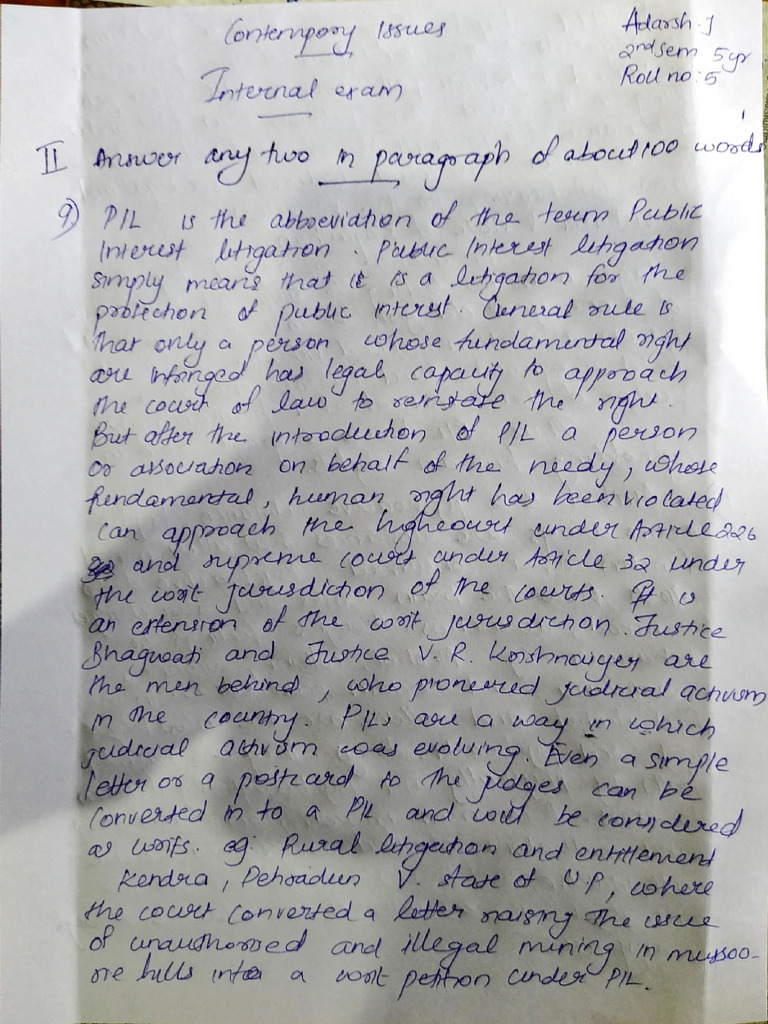 Contempory Issues
Adarsh. J
2nd sem 5yr
Roll no: 5
Internal exam
II Answer any two in paragraph of about 100 words
9) PIL is the abbreviation of the term Public
Interest litigation. Public Interest litigation
simply means that it is a litigation for the
protection of public interest. General rule is
that only a person whose fundamental right
are infringed has legal capacity to approach
the court of law to reinstate the right.
But after the introduction of PIL a person
or association on behalf of the needy, whose
fundamental, human right has been violated
can approach the highcourt under Article 226
and supreme court under Article 32 under
the writ jurisdiction of the courts. It is
an extension of the writ jurisdiction. Justice
Bhagwati and Justice V. R. Krishnaiyer are
the men behind, who pioneered judicial activism
in the country. PILs are a way in which
judicial activism was evolving. Even a simple
letter or a postcard to the judges can be
converted in to a PIL and will be considered
as writs. eg: Rural litigation and entitlement
Kendra, Dehradun V. state of U.P, where
the court converted a letter raising the issue
of unauthorised and illegal mining in mussoo-
rie hills into a writ petition under PIL.